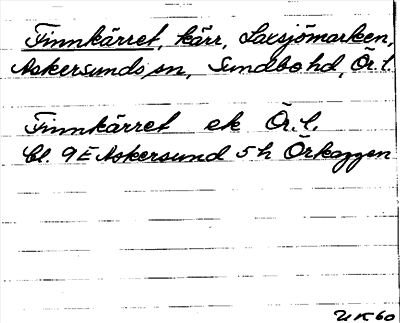 Finnkärret, kärr, Laxsjömarken,
Askersunds sn, Sundbo hd, Ör. l.
Finnkärret ek Ör. l.
Bl. 9E Askersund 5h Örkaggen
UK60